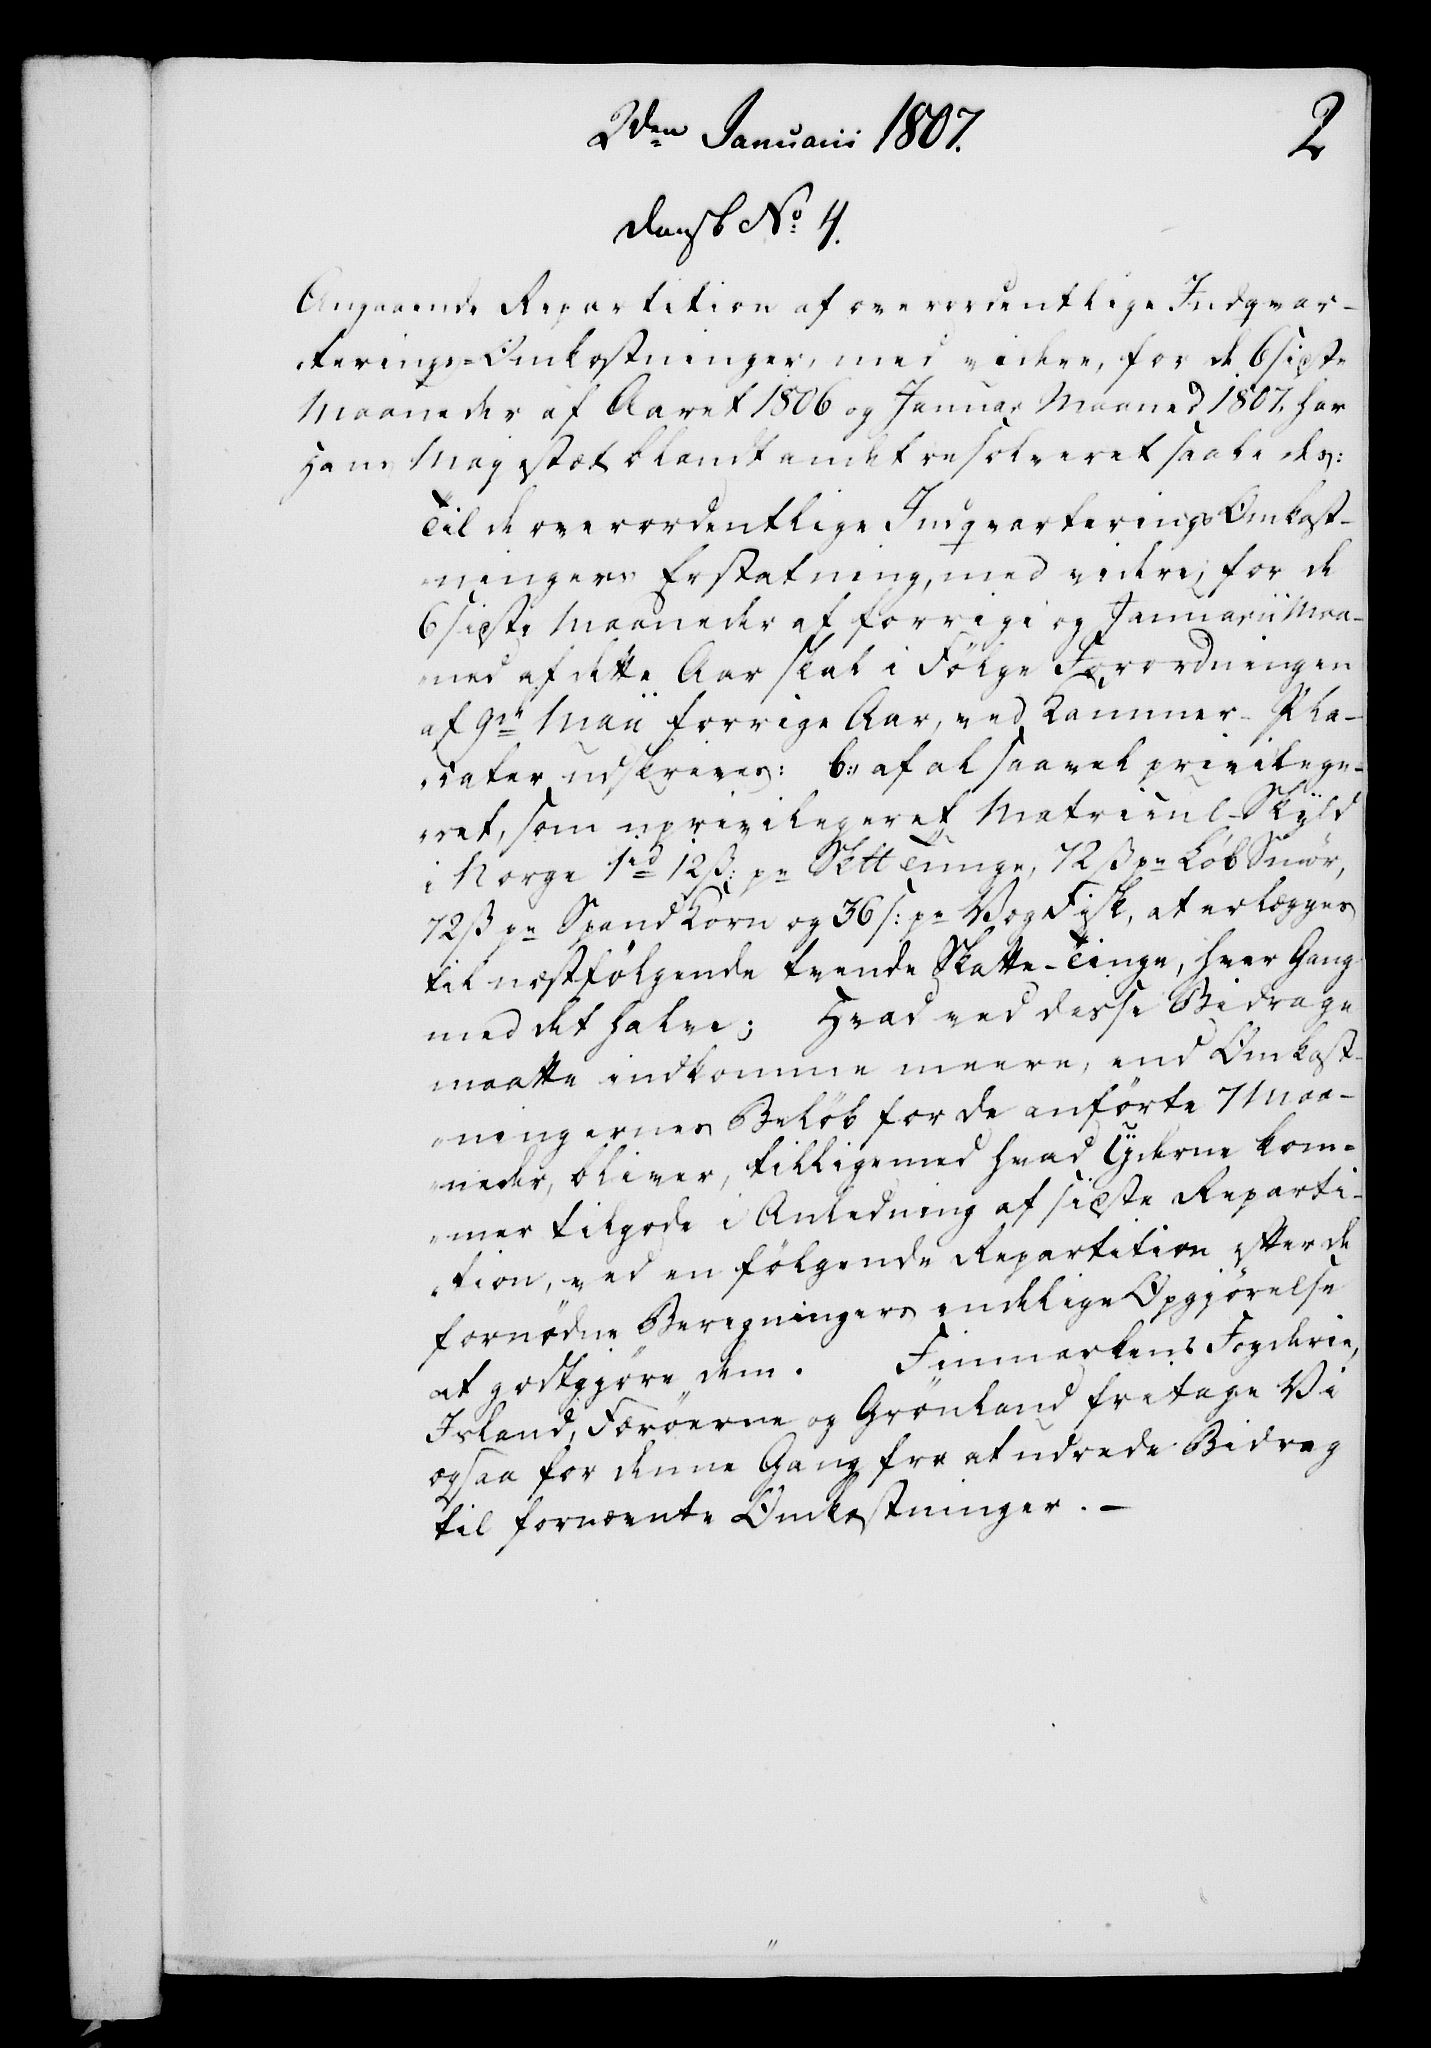 2den Januarii 1807.
2
dansk No 4.
Angaaende Repartition af overordentlige Indqvar-
terings-Omkostninger, med videre, for de 6 sidste
Maaneder af Aaret 1806 og Januar Maaned 1807. har
Hans Majestæt blandt andet resolveret saaledes:
Til de overordentlige Indqvarterings Omkost-
ningers Erstatning, med videre, for de
6 sidste Maaneder af forrige og Januarii Maa-
ned af dette Aar skal i Følge Forordningen
af 9de Maii forrige Aar, ved Kammer-Pla-
cater udskrives: b: af al saavel privilege-
ret, som uprivilegeret Matricul-Skyld
i Norge 1rd 12ß: pr Sk℔ Tunge, 72ß pr Løb Smør,
72ß pr Spand Korn og 36ß: pr Vog Fisk, at erlægges
til næstfølgende tvende Skatte-Tinge, hver Gang
med det halve; Hvad ved disse Bidrage
maatte indkomme meere, end Omkost-
ningernes Beløb for de anførte 7 Maa-
neder, bliver, tilligemed hvad Yderne kom-
mer tilgode i Anledning af sidste Reparti-
tion, ved en følgende Repartition efter de
fornødne Beregningers endelige Opgjørelse
at godtgjøre dem. Finmarkens Fogderie,
Island, Færøerne og Grønland fritage Vi
ogsaa for denne Gang fra at udrede Bidrag
til fornævnte Omkostninger. -